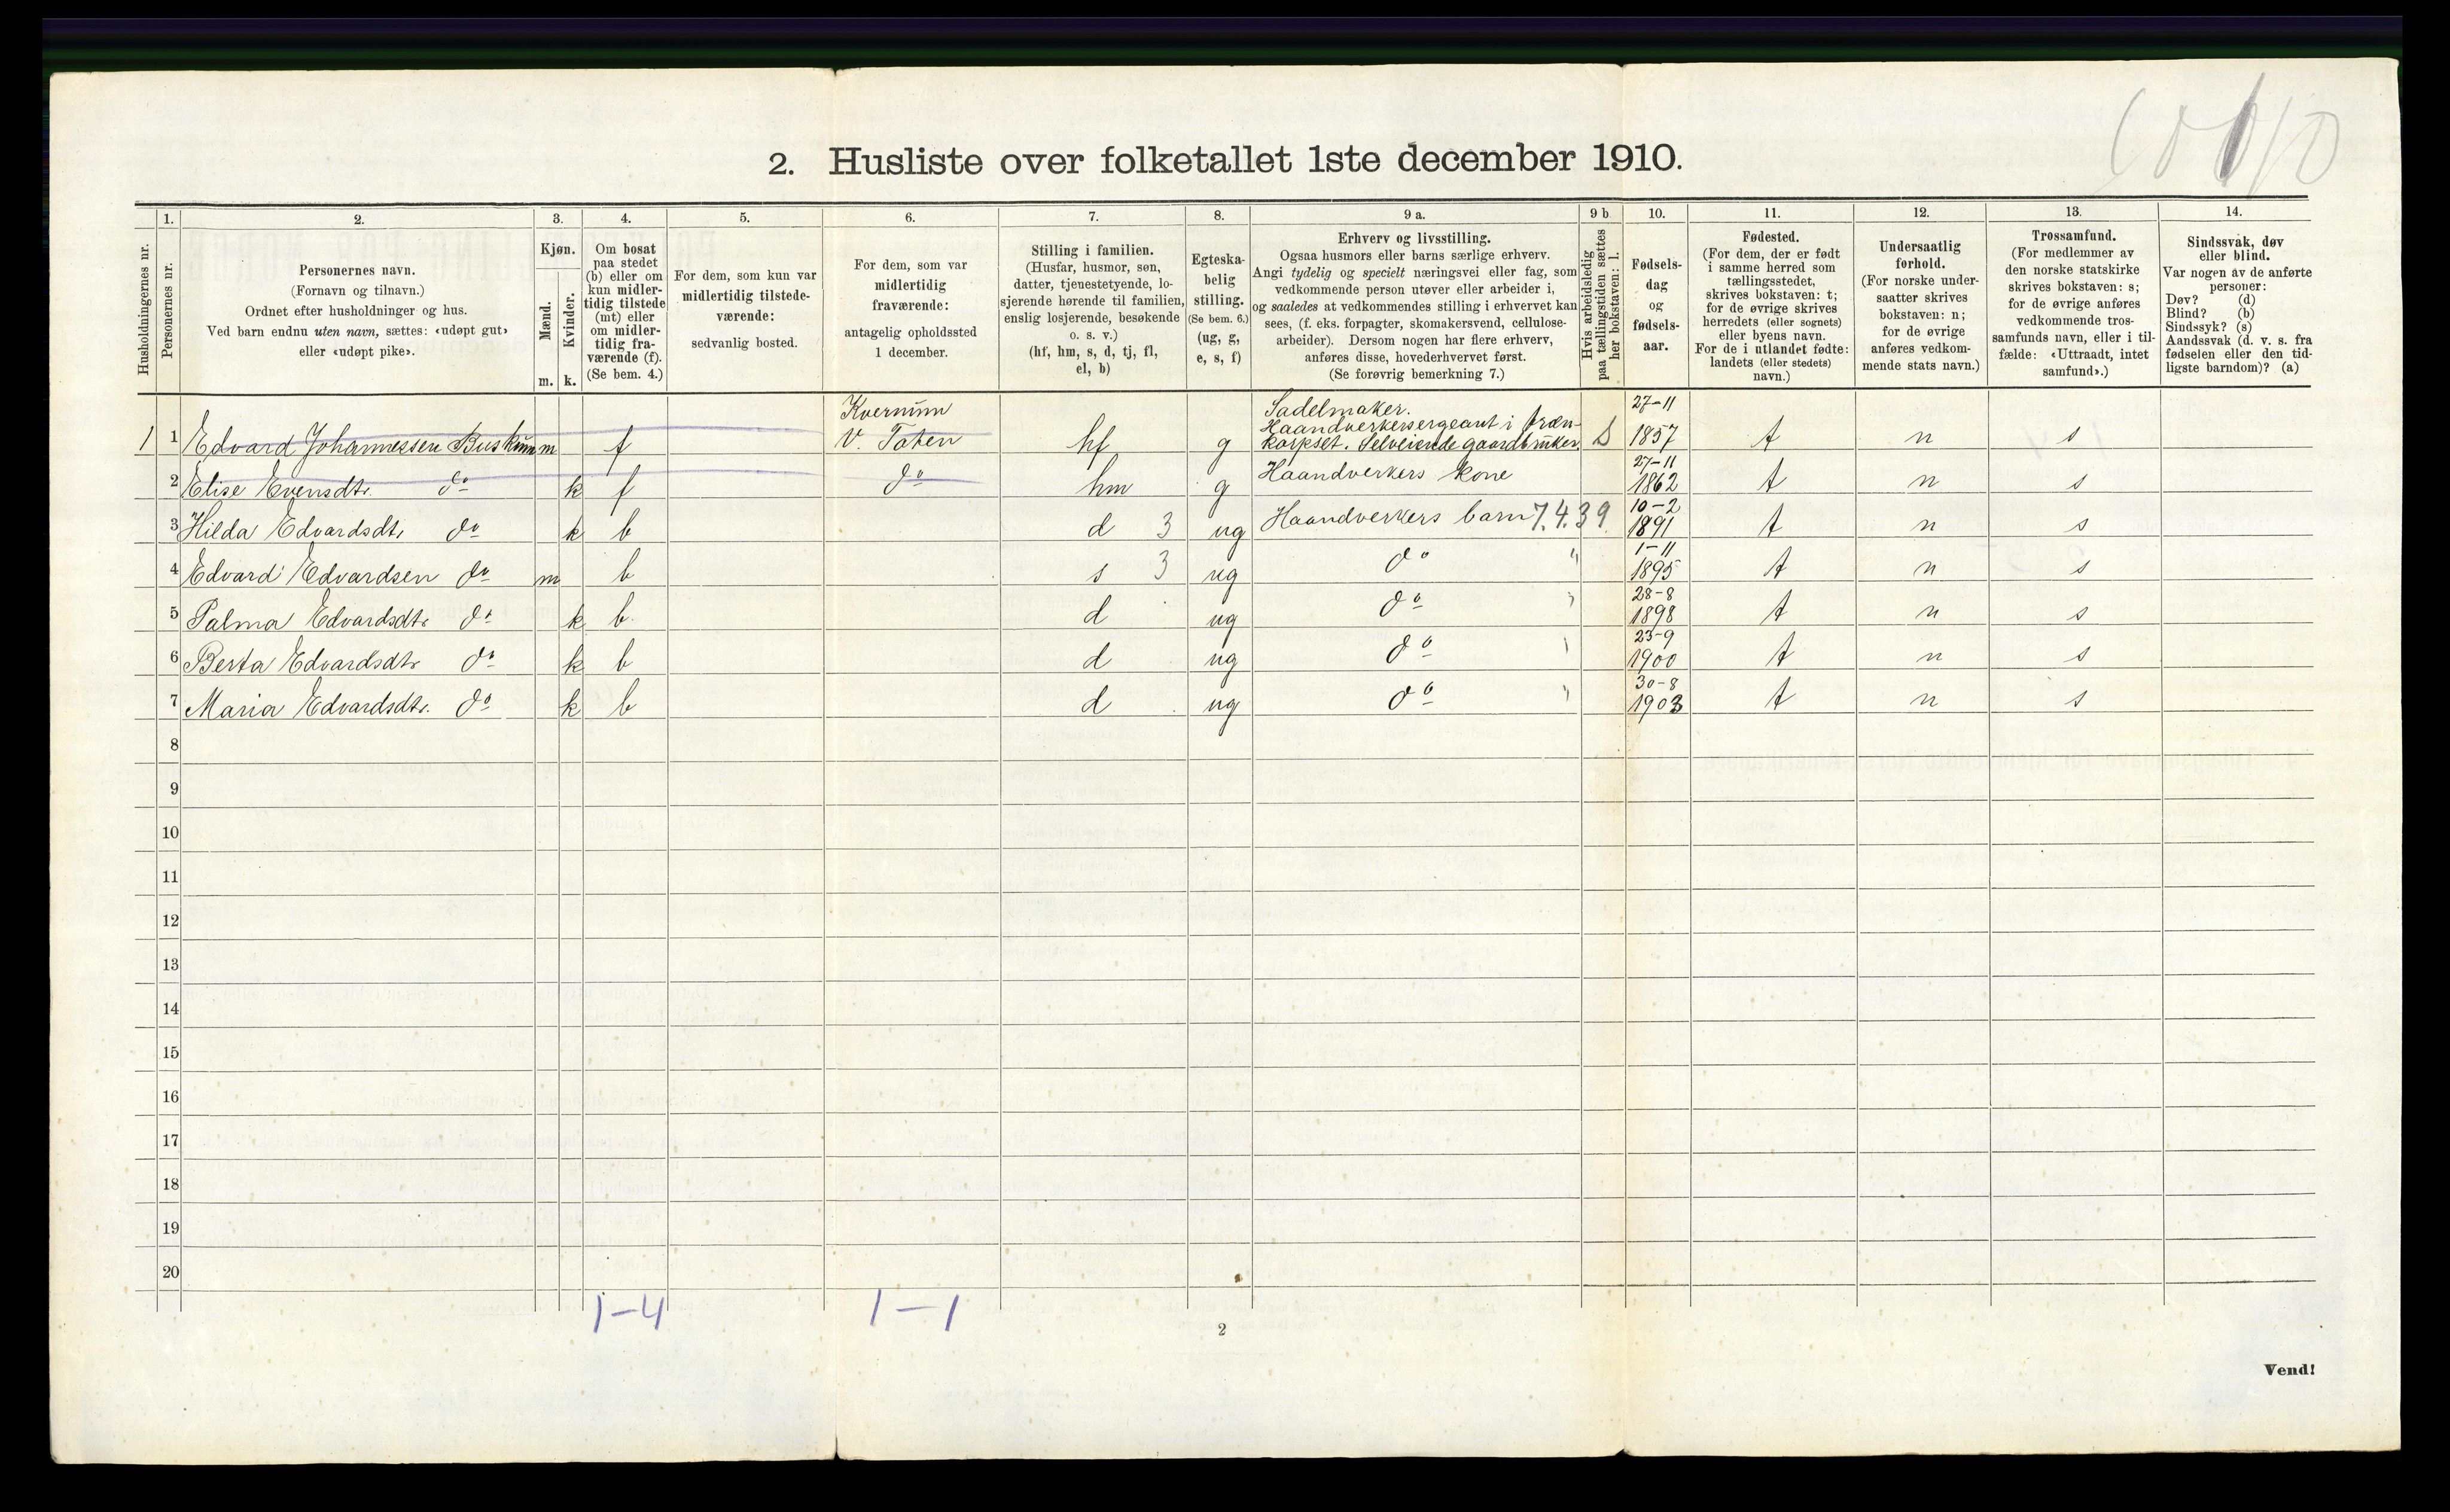 2. Husliste over folketallet 1ste december 1910.
Husholdningernes nr.
1.
Personernes nr.
2.
Personernes navn.
(Fornavn og tilnavn.)
Ordnet efter husholdninger og hus.
Ved barn endnu uten navn, sættes: «udøpt gut»
eller «udøpt pike».
3.
Kjøn.
Mænd.
Kvinder.
m. k.
4.
Om bosat
paa stedet
(b) eller om
kun midler-
tidig tilstede
(mt) eller
om midler-
tidig fra-
værende (f).
(Se bem. 4.)
5.
For dem, som kun var
midlertidig tilstede-
værende:
sedvanlig bosted.
6.
For dem, som var
midlertidig
fraværende:
antagelig opholdssted
1 december.
7.
Stilling i familien.
(Husfar, husmor, søn,
datter, tjenestetyende, lo-
sjerende hørende til familien,
enslig losjerende, besøkende
o. s. v.)
(hf, hm, s, d, tj, fl,
el, b)
8.
Egteska-
belig
stilling.
(Se bem. 6.)
(ug, g,
e, s, f)
9 a.
Erhverv og livsstilling.
Ogsaa husmors eller barns særlige erhverv.
Angi tydelig og specielt næringsvei eller fag, som
vedkommende person utøver eller arbeider i,
og saaledes at vedkommendes stilling i erhvervet kan
sees, (f. eks. forpagter, skomakersvend, cellulose-
arbeider). Dersom nogen har flere erhverv,
anføres disse, hovederhvervet først.
(Se forøvrig bemerkning 7.)
9 b
Hvis arbeidsledig
paa tællingstiden sættes
her bokstaven: l.
10.
Fødsels-
dag
og
fødsels-
aar.
11.
Fødested.
(For dem, der er født
i samme herred som
tællingsstedet,
skrives bokstaven: t;
for de øvrige skrives
herredets (eller sognets)
eller byens navn.
For de i utlandet fødte:
landets (eller stedets)
navn.)
12.
Undersaatlig
forhold.
(For norske under-
saatter skrives
bokstaven: n;
for de øvrige
anføres vedkom-
mende stats navn.)
13.
Trossamfund.
(For medlemmer av
den norske statskirke
skrives bokstaven: s;
for de øvrige anføres
vedkommende tros-
samfunds navn, eller i til-
fælde: «Uttraadt, intet
samfund».)
14.
Sindssvak, døv
eller blind.
Var nogen av de anførte
personer:
Døv? (d)
Blind? (b)
Sindssyk? (s)
Aandssvak (d. v. s. fra
fødselen eller den tid-
ligste barndom)? (a)
Kvernum Sadelmaker. 27-11
1 1 Edvard Johannessen Buskum m f V. Toten hf g Haandverkersergeant i træn-
korpset. Selveiende gaardbruker. 1857 t n s
2 Elise Evensdt. do k f do hm g Haandverkers kone 27-11 1862 t n s
3 Hilda Edvardsdt. do k b d 3 ug Haandverkers barn 7.4.39 10-2 1891 t n s
4 Edvard Edvardsen do m b s 3 ug do " 1-11 1895 t n s
5 Palma Edvardsdt. do k b d ug do " 28-8 1898 t n s
6 Berta Edvardsdt. do k b d ug do " 23-9 1900 t n s
7 Maria Edvardsdt. do k b d ug do " 30-8 1903 t n s
8
9
10
11
12
13
14
15
16
17
18
19
20
1-4 1-1
2
Vend!